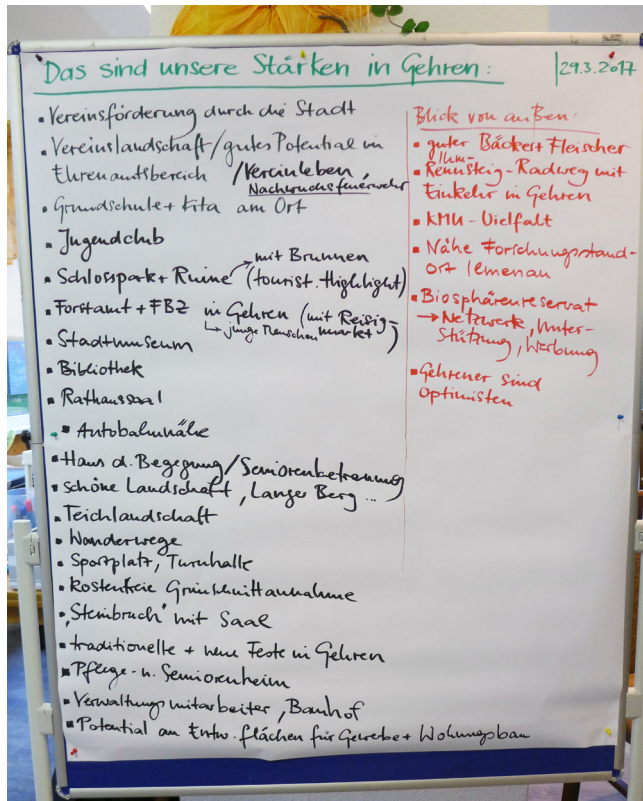 Das sind unsere Stärken in Gehren:
29.3.2017
▪ Vereinsförderung durch die Stadt
▪ Vereinslandschaft/gutes Potential im
Ehrenamtsbereich /Vereinleben,
Nachwuchsfeuerwehr
▪ Grundschule + Kita am Ort
▪ Jugendclub
▪ Schlosspark + Ruine → mit Brunnen
(tourist. Highlight)
▪ Forstamt + FBZ in Gehren (mit Reisig-
↳ junge Menschen markt)
▪ Stadtmuseum
▪ Bibliothek
▪ Rathaussaal
▪ Autobahnnähe
▪ Haus d. Begegnung/Seniorenbetreuung
▪ schöne Landschaft, Langer Berg ...
▪ Teichlandschaft
▪ Wanderwege
▪ Sportplatz, Turnhalle
▪ kostenfreie Grünschnittannahme
▪ ,Steinbruch' mit Saal
▪ traditionelle + neue Feste in Gehren
▪ Pflege- u. Seniorenheim
▪ Verwaltungsmitarbeiter, Bauhof
▪ Potential an Entw.flächen für Gewerbe + Wohnungsbau
Blick von außen:
▪ guter Bäcker + Fleischer
▪ Ilm-
Rennsteig-Radweg mit
Einkehr in Gehren
▪ KMU-Vielfalt
▪ Nähe Forschungsstand-
ort Ilmenau
▪ Biosphärenreservat
→ Netzwerk, Unter-
stützung, Werbung
▪ Gehrener sind
Optimisten